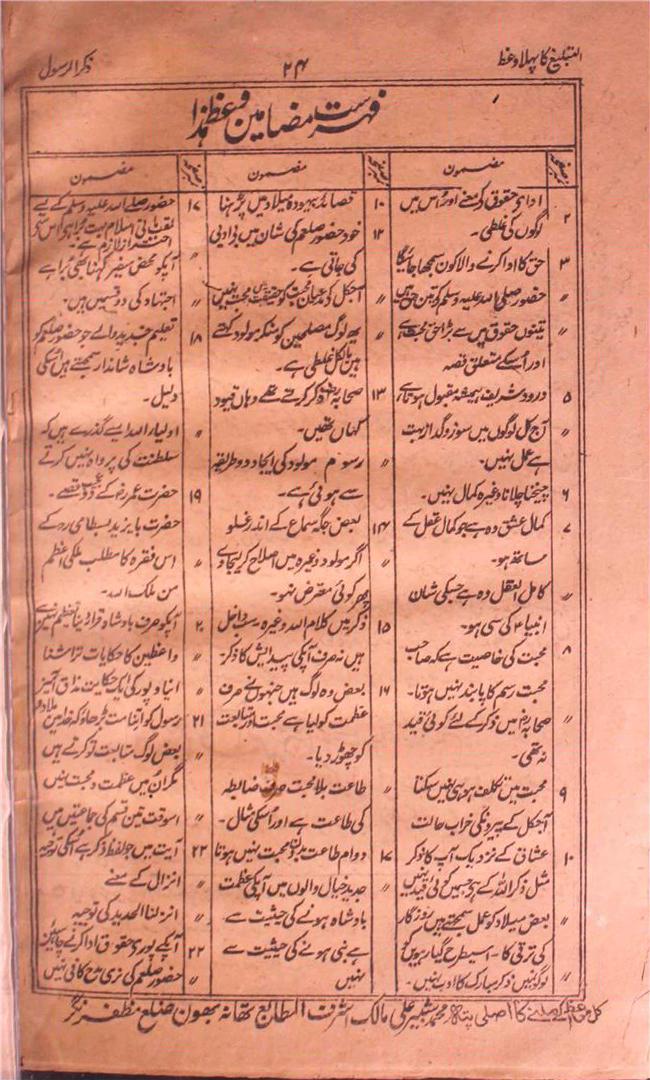 التبلیغ کا پہلا وعظ
۲۴
ذکر الرسول
فہرست مضامین وعظ ہذا
نمبر صفحہ
مضمون
نمبر صفحہ
مضمون
نمبر صفحہ
مضمون
۲ اداے حقوق کے معنے اور اس میں
لوگوں کی غلطی۔
۳ حق کا ادا کرنے والا کون سمجھا جائیگا
〃 حضور صلی اللہ علیہ وسلم کے تین حق ہیں
〃 تینوں حقوق میں سے بڑا حق محبت ہے
اور اسکے متعلق قصہ
۵ درود شریف ہمیشہ مقبول ہوتا ہے
〃 آج کل لوگوں میں سوز و گداز بہت
ہے عمل نہیں۔
۶ چیخنا چلانا وغیرہ کمال نہیں۔
۷ کمال عشق وہ ہے جو کمال عقل کے
ساتھ ہو۔
〃 کامل العقل وہ ہے جسکی شان
انبیاء کی سی ہو۔
۸ محبت کی خاصیت ہے کہ صاحب
محبت رسم کا پابند نہیں ہوتا۔
〃 صحابہ میں ذکر کے لئے کوئی قید
نہ تھی۔
۹ محبت میں تکلف ہو ہی نہیں سکتا
آجکل کے پیروں کی خراب حالت
۱۰ عشاق کے نزدیک آپ کا ذکر
مثل ذکر اللہ کے ہے جسمیں کوئی قید نہیں
〃 بعض میلاد کو عمل سمجھتے ہیں روزگار
کی ترقی کا۔ اسیطرح گیارہویں کو
〃 لوگوں میں ذکر مبارک کا ادب نہیں۔
۱۰ قصائد بیہودہ میلاد میں پڑھنا
۱۲ خود حضور صلعم کی شان میں بے ادبی
کی جاتی ہے۔
〃 آجکل کے مدعیان محبت کو حقیقت میں محبت نہیں
〃 یہ لوگ مصلحین کو منکر مولود کہتے
ہیں بالکل غلطی ہے۔
۱۳ صحابہ ذکر کرتے تھے وہاں قیود
کہاں تھیں۔
〃 رسوم مولود کی ایجاد دو طریقہ
سے ہوئی ہے۔
۱۴ بعض جگہ سماع کے اندر غلو
〃 اگر مولود وغیرہ میں اصلاح کر لیجاوے
پھر کوئی معترض نہو۔
۱۵ ذکر میں کلام اللہ وغیرہ سب داخل
ہیں نہ صرف آپکی پیدایش کا ذکر۔
۱۶ بعض وہ لوگ ہیں جنہوں نے صرف
عظمت کو لیا ہے محبت اور متابعت
کو چھوڑ دیا۔
〃 طاعت بلا محبت صرف ضابطہ
کی طاعت ہے اور اسکی مثال۔
〃 دوام طاعت بدون محبت نہیں ہوتا
۱۷ جدید خیال والوں میں آپکی عظمت
بادشاہ ہونے کی حیثیت سے
ہے نبی ہونے کی حیثیت سے
نہیں
۱۷ حضور صلے اللہ علیہ وسلم کے لیے
لقب بانی اسلام بہت برا ہے اس سے
احتراز لازم ہے۔
〃 آپکو محض سفیر کہنا بھی برا ہے
〃 اجتہاد کی دو قسمیں ہیں۔
۱۸ تعلیم جدید والے جو حضور صلعم کو
بادشاہ شاندار سمجھتے ہیں اسکی
دلیل۔
〃 اولیاء اللہ ایسے گذرے ہیں کہ
سلطنت کی پرواہ نہیں کرتے
۱۹ حضرت عمر کے دو عجیب قصے۔
〃 حضرت بایزید بسطامی کے
اس فقرہ کا مطلب ملکی اعظم
من ملک اللہ۔
۲۰ آپکو صرف بادشاہ قرار دینا تعظیم نہیں ہے
〃 واعظین کا حکایات تراشنا
〃 انباوپور کی ایک حکایت مذاق آمیز
۲۱ رسول کو اتنا مت بڑھاؤ کہ خدا میں ملادو
〃 بعض لوگ متابعت تو کرتے ہیں
مگر ان میں عظمت و محبت نہیں
〃 اسوقت تین قسم کی جماعتیں ہیں
۲۲ آیت میں جو لفظ ذکر ہے اسکی توجیہ
〃 انزال کے معنے
〃 انزلنا الحدید کی توجیہ
۲۲ آپکے پوری حقوق ادا کرنے چاہئیں
〃 حضور صلعم کی نری مدح کافی نہیں
کل مواعظ کے ملنے کا اصلی پتہ محمد شبیر علی مالک اشرف المطابع تھانہ بھون ضلع مظفر نگر